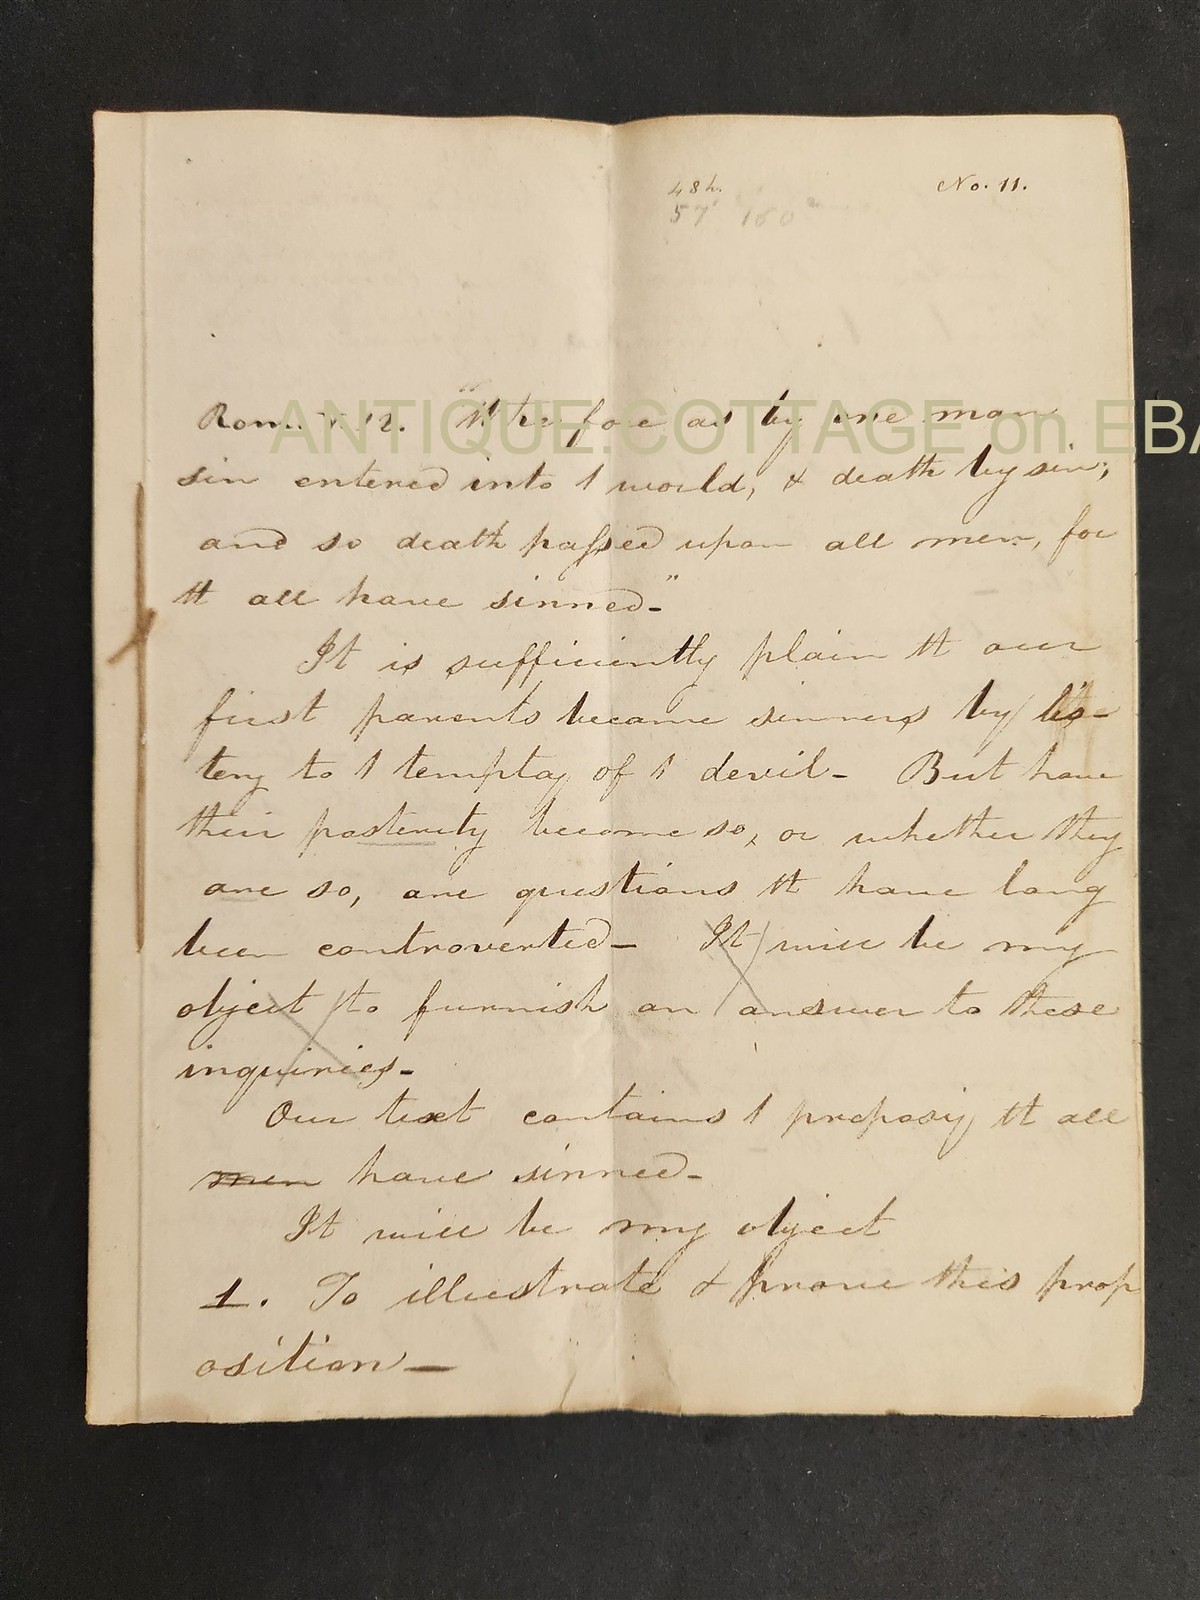 48 h.
No. 11.
57 160
Rom. V. 12. "Wherefore as by one man
ANTIQUE.COTTAGE on EBA
sin entered into 1 world, & death by sin;
and so death passed upon all men, for
tt all have sinned-"
It is sufficiently plain tt our
first parents became sinners by lis-
teng to 1 temptag of 1 devil- But have
their posterity become so, or whether they
are so, are questions tt have long
been controverted- It will be my
object to furnish an answer to these
inquiries-
Our text contains 1 proposig tt all
men have sinned-
It will be my object
1. To illustrate & prove this prop
osition-